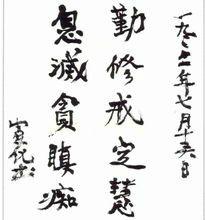 年七月十五日
勤修戒定慧
息滅貪瞋痴
宣化